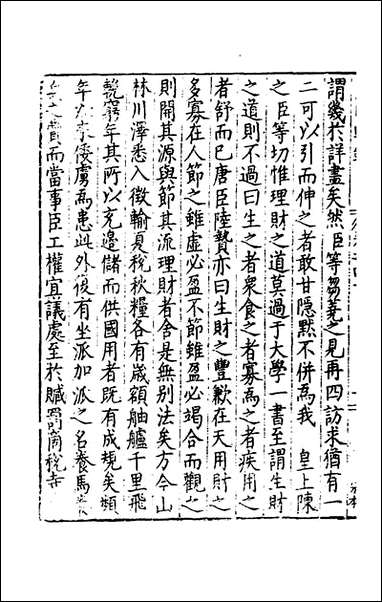 謂幾於詳盡矣然臣等芻蕘之見再四訪求猶有一
二可以引而伸之者敢甘隱默不併爲我　皇上陳
之臣等切惟理財之道莫過于大學一書至謂生財
之道則不過曰生之者衆食之者寡爲之者疾用之
者舒而已唐臣陸贄亦曰生財之豐歉在天用財之
多寡在人節之雖虛必盈不節雖盈必竭合而觀之
則開其源與節其流理財者舍是無別法矣方今山
林川澤悉入徵輸夏稅秋糧各有歲額舳艫千里飛
輓窮年其所以充邊儲而供國用者既有成規矣頻
年以來倭虜爲患此外後有坐派加派之名養馬
之費而當事臣工權宜議處至於贓罰商稅寺